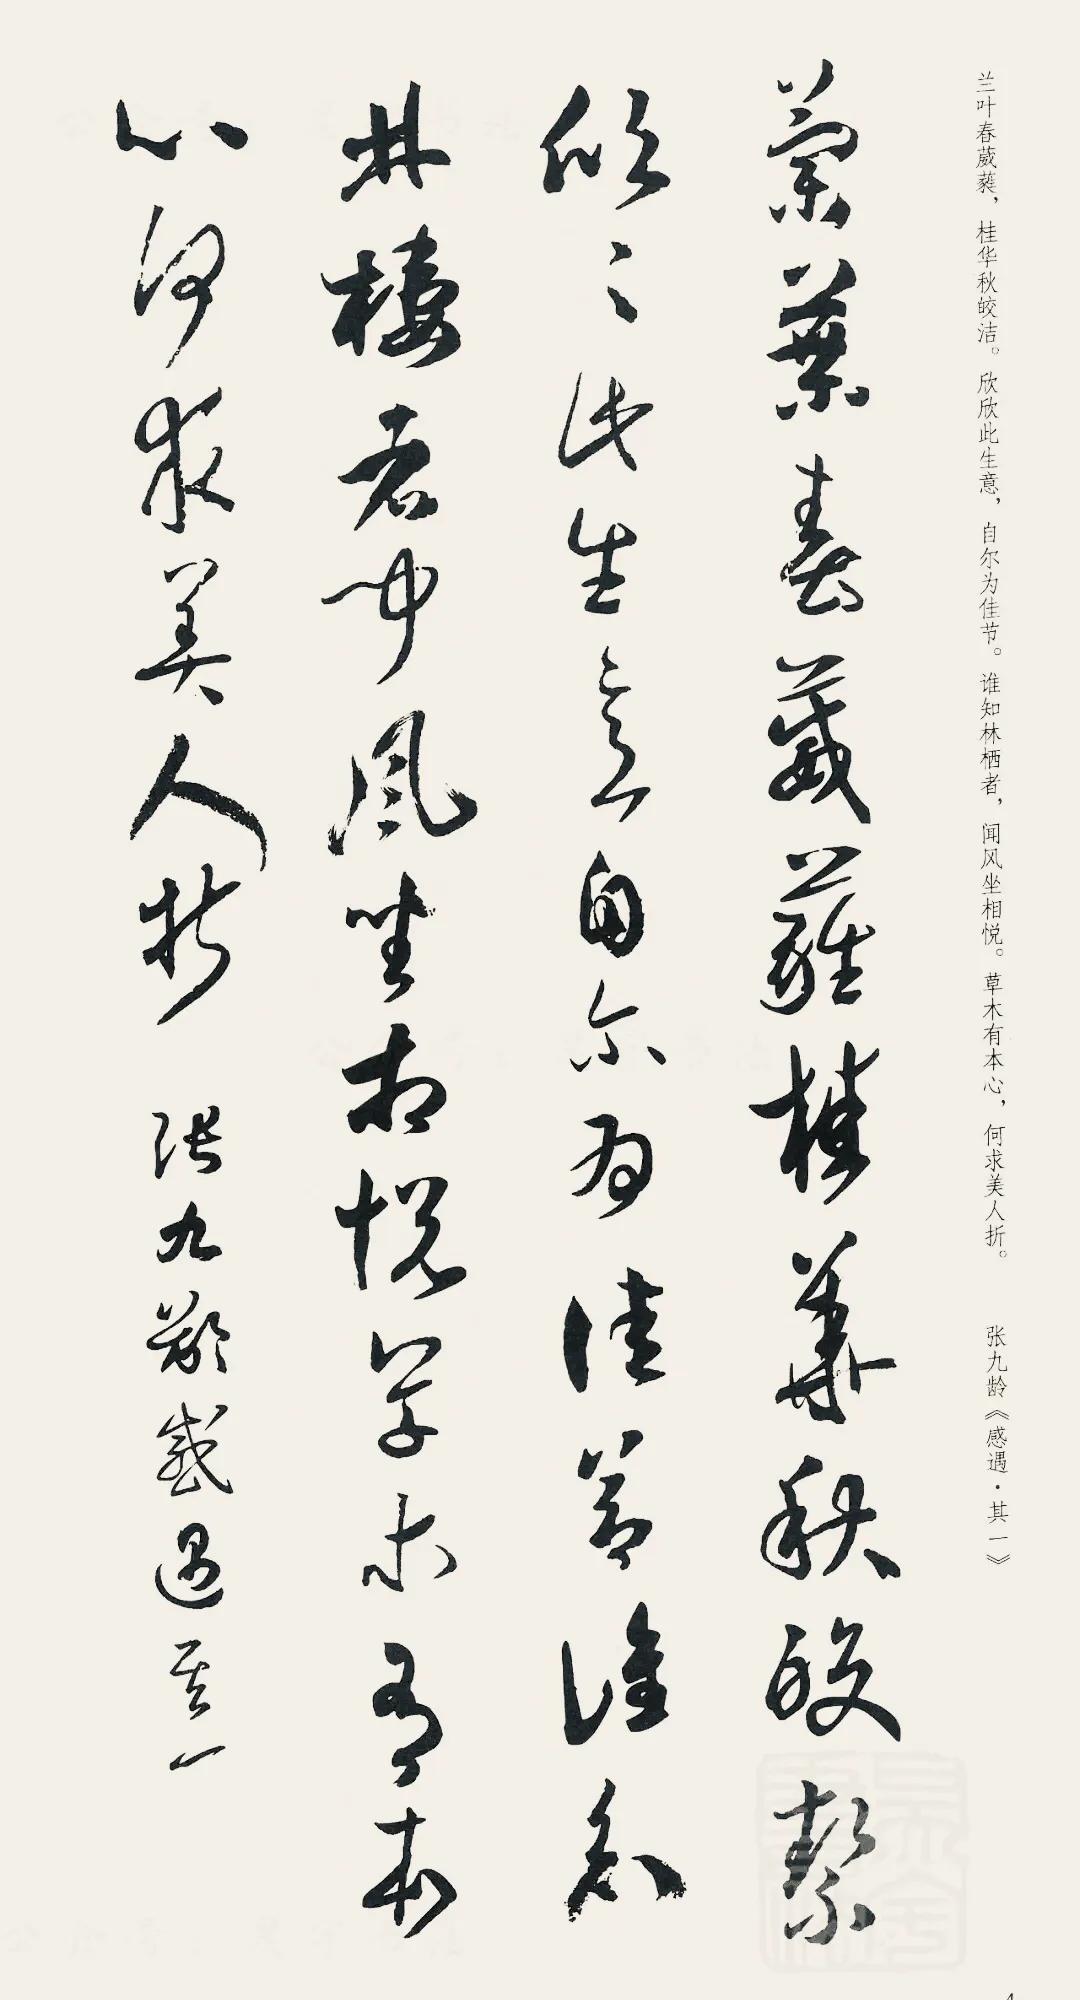 兰叶春葳蕤，桂华秋皎洁。欣欣此生意，自尔为佳节。谁知林栖者，闻风坐相悦。草木有本心，何求美人折。 张九龄《感遇·其一》
蘭葉春葳蕤桂華秋皎絜
欣〻此生意自尔為佳節誰知
林棲者聞風坐相悅草木有本
心何求美人折 張九齡感遇其一